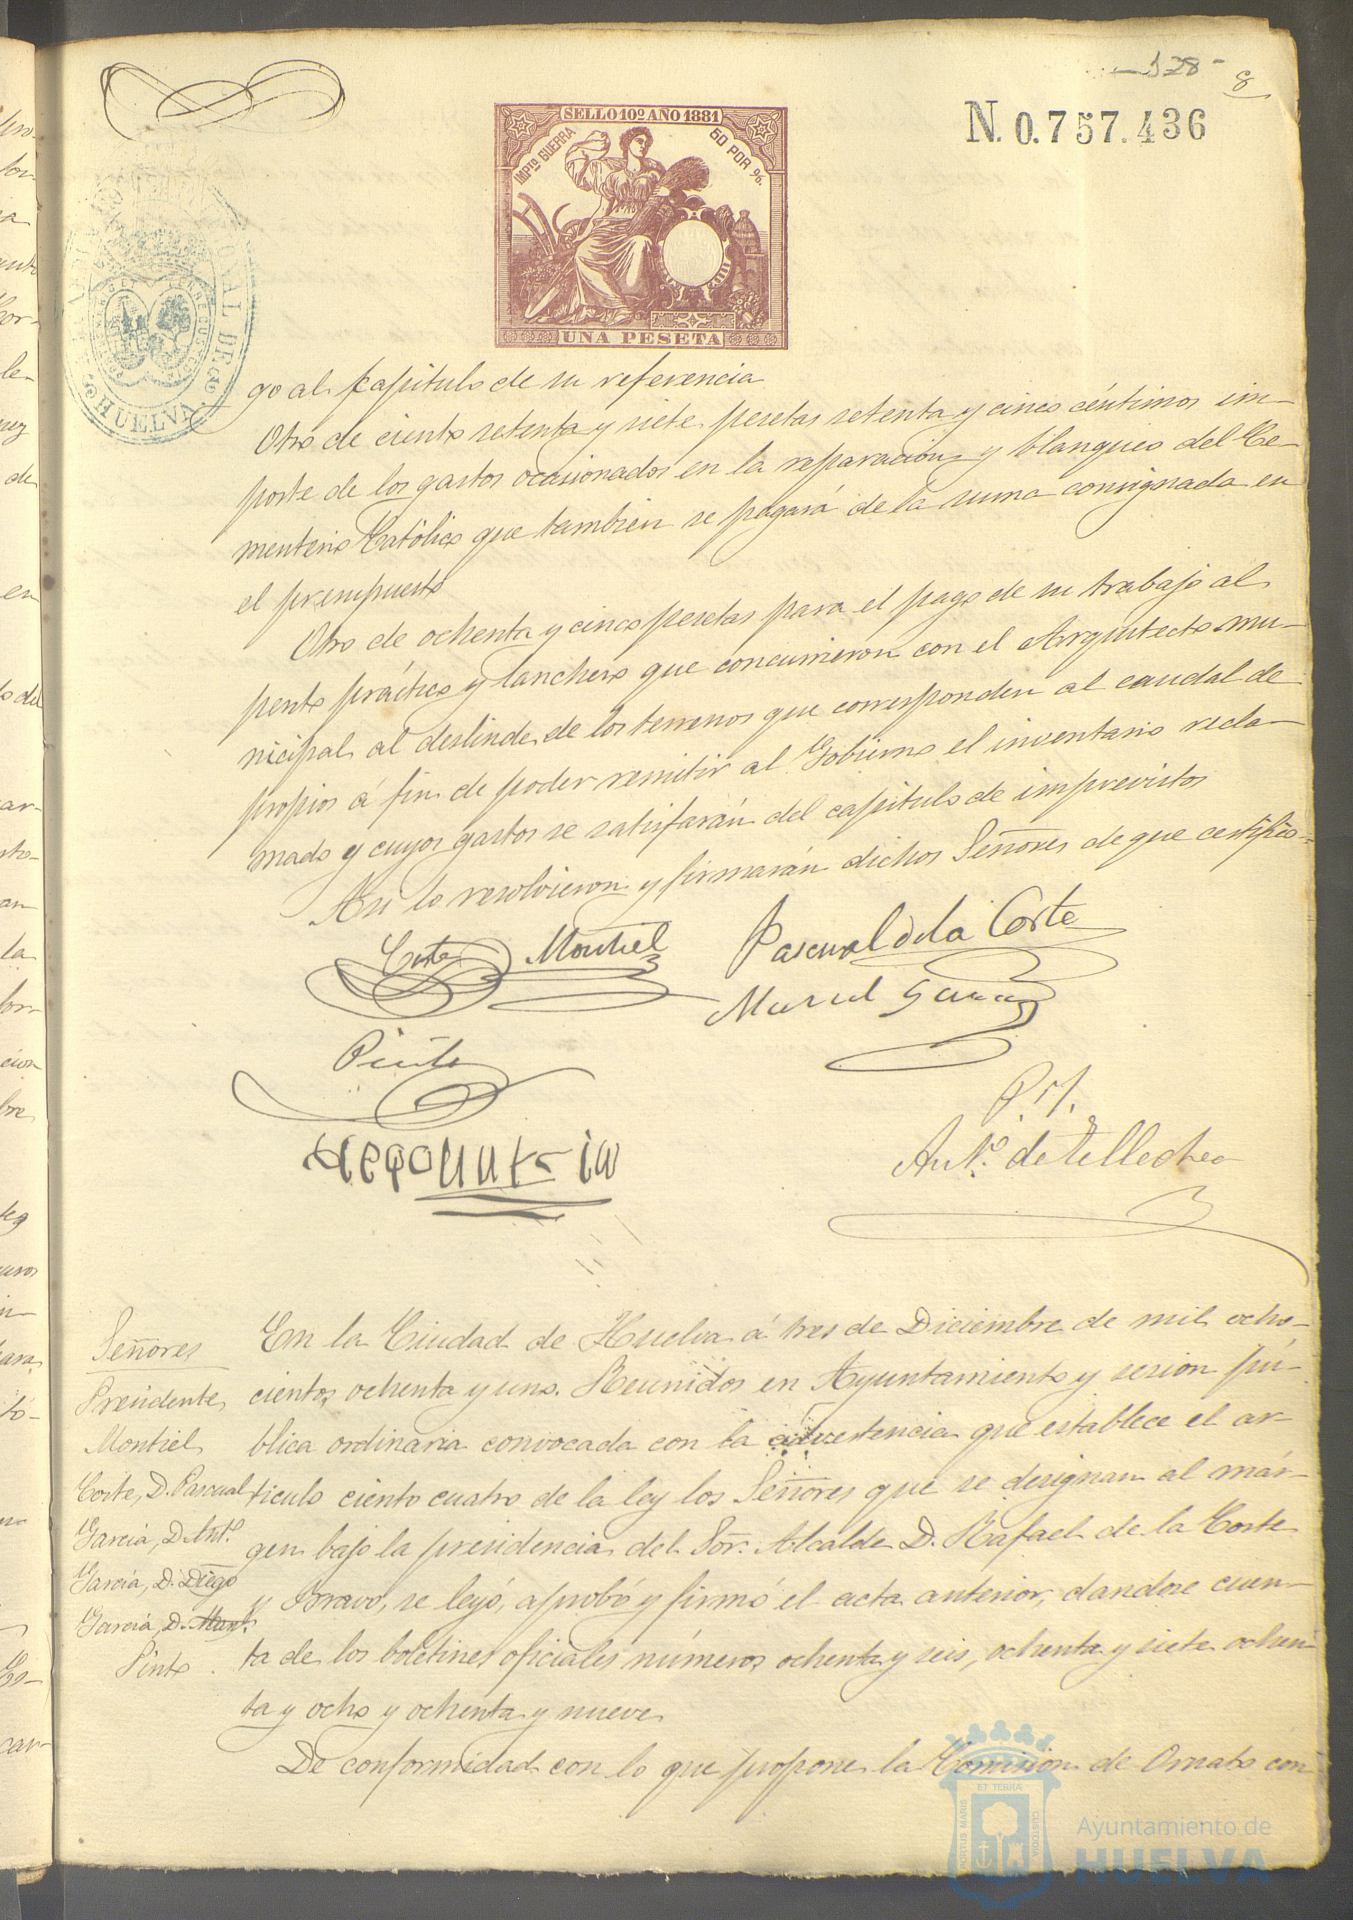 128
8
N. 0.757.436
SELLO 10º AÑO 1881
IMPTO GUERRA
60 POR %.
UNA PESETA
HUELVA
go al Capitulo de su referencia
Otro de ciento setenta y siete pesetas setenta y cinco céntimos im-
porte de los gastos ocasionados en la reparacion y blanqueo del Ce-
menterio Católico que tambien se pagará de la suma consignada en
el presupuesto
Otro de ochenta y cinco pesetas para el pago de su trabajo al
perito práctico y lanchero que concurrieron con el Arquitecto mu-
nicipal al deslinde de los terrenos que corresponden al caudal de
propios á fin de poder remitir al Gobierno el inventario recla-
mado y cuyos gastos se satisfarán del capitulo de imprevistos
Asi lo resolvieron y firmarán dichos Señores de que certifico=
Corte
Montiel
Pascual de la Corte
Manuel Garcia
Pinto
Diego Garcia
P. I.
Antº. de Tellechea
Señores
Presidente
Montiel
Corte, D. Pascual
Garcia, D. Antº.
Garcia, D. Diego
Garcia, D. Manl.
Pinto
En la Ciudad de Huelva á tres de Diciembre de mil ocho-
cientos ochenta y uno. Reunidos en Ayuntamiento y sesion pú-
blica ordinaria convocada con la advertencia que establece el ar-
ticulo ciento cuatro de la ley los Señores que se designan al már-
gen bajo la presidencia del Sor. Alcalde D. Rafael de la Corte
y Bravo, se leyó, aprobó y firmó el acta anterior, dandose cuen-
ta de los boletines oficiales números ochenta y seis, ochenta y siete ochen-
ta y ocho y ochenta y nueve
De conformidad con lo que propone la Comision de Ornato con
ET TERRA
PORTUS MARIS
CUSTODIA
Ayuntamiento de
HUELVA